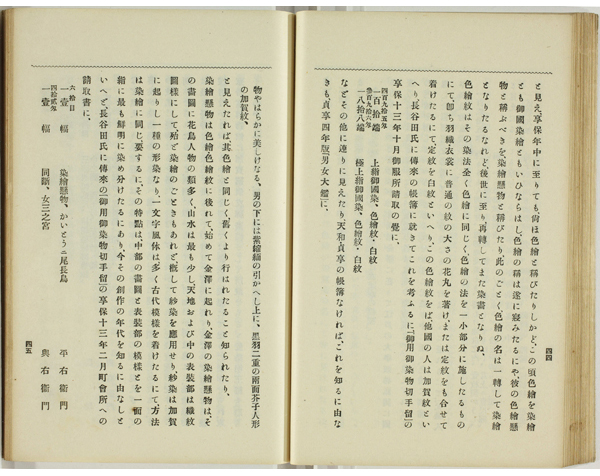 と見え、享保年中に至りても尚ほ色繪と稱びたりしかど、この頃色繪を染繪
とも御國染繪ともいひならはし、色繪の稱は遂に寢みたるにや、彼の色繪懸
物と稱ぶべきを、染繪懸物と稱びたり、此のごとく色繪の名は一轉して染繪
となりたるなれど、後世に至り、再轉してまた染書となりね。
色繪紋はその染法全く色繪に同じく、色繪の法を一小部分に施したるもの
にて、即ち羽織衣裳に普通の紋の大さの花丸を著け、または定紋をも合せて
着けたるにて、定紋を白紋といへり、この色繪紋をば、他國の人は加賀紋とい
へり、長谷田氏に傳來の帳簿に就きてこれを考ふるに、「御用御染物切手留」の
享保十三年十月御服所請取の覺に、
四百九十五匁
一百拾端　上絹御國染、色繪紋・白紋
叁百九十六匁
一八拾八端　極上絹御國染、色繪紋・白紋
などその他に連りに見えたり、天和貞享の帳簿なければ、これを知るに由な
きも、貞享四年版「男女大鑑」に、
四四
物やはらかに美しけなる、男の下には紫縮緬の引かへし上に、黑羽二重の兩面芥子人形
の加賀紋、
と見えたれば、其色繪と同じく、舊くより行はれたることを知られたり、
染繪懸物は色繪色繪紋に後れて、始めて金澤に起れり、金澤の染繪懸物は、そ
の畫圖に花鳥人物の類多く、山水は最も少し、天地および中の表裝部は織紋
圖樣にして、殆ど染繪のごときもあれど、概して紗染を應用せり、紗染は加賀
に起りし一種の形染なり、一文字風體は多く古代模樣を着けたるにて、方法
は染繪に同じ、要するに、その特點は、中部の畫圖と表裝部の模樣とを一幅の
絹に最も鮮明に染め分けたるにあり、今その創作の年代を知るに由なしと
いへど、長谷田氏に傳來の「御用御染物切手留」の享保十三年二月町會所への
請取書に、
六拾目
一壹幅　染繪懸物、かいとうニ尾長鳥　平右衞門
四拾貳匁
一壹幅　同斷、女三之宮　與右衞門
四五